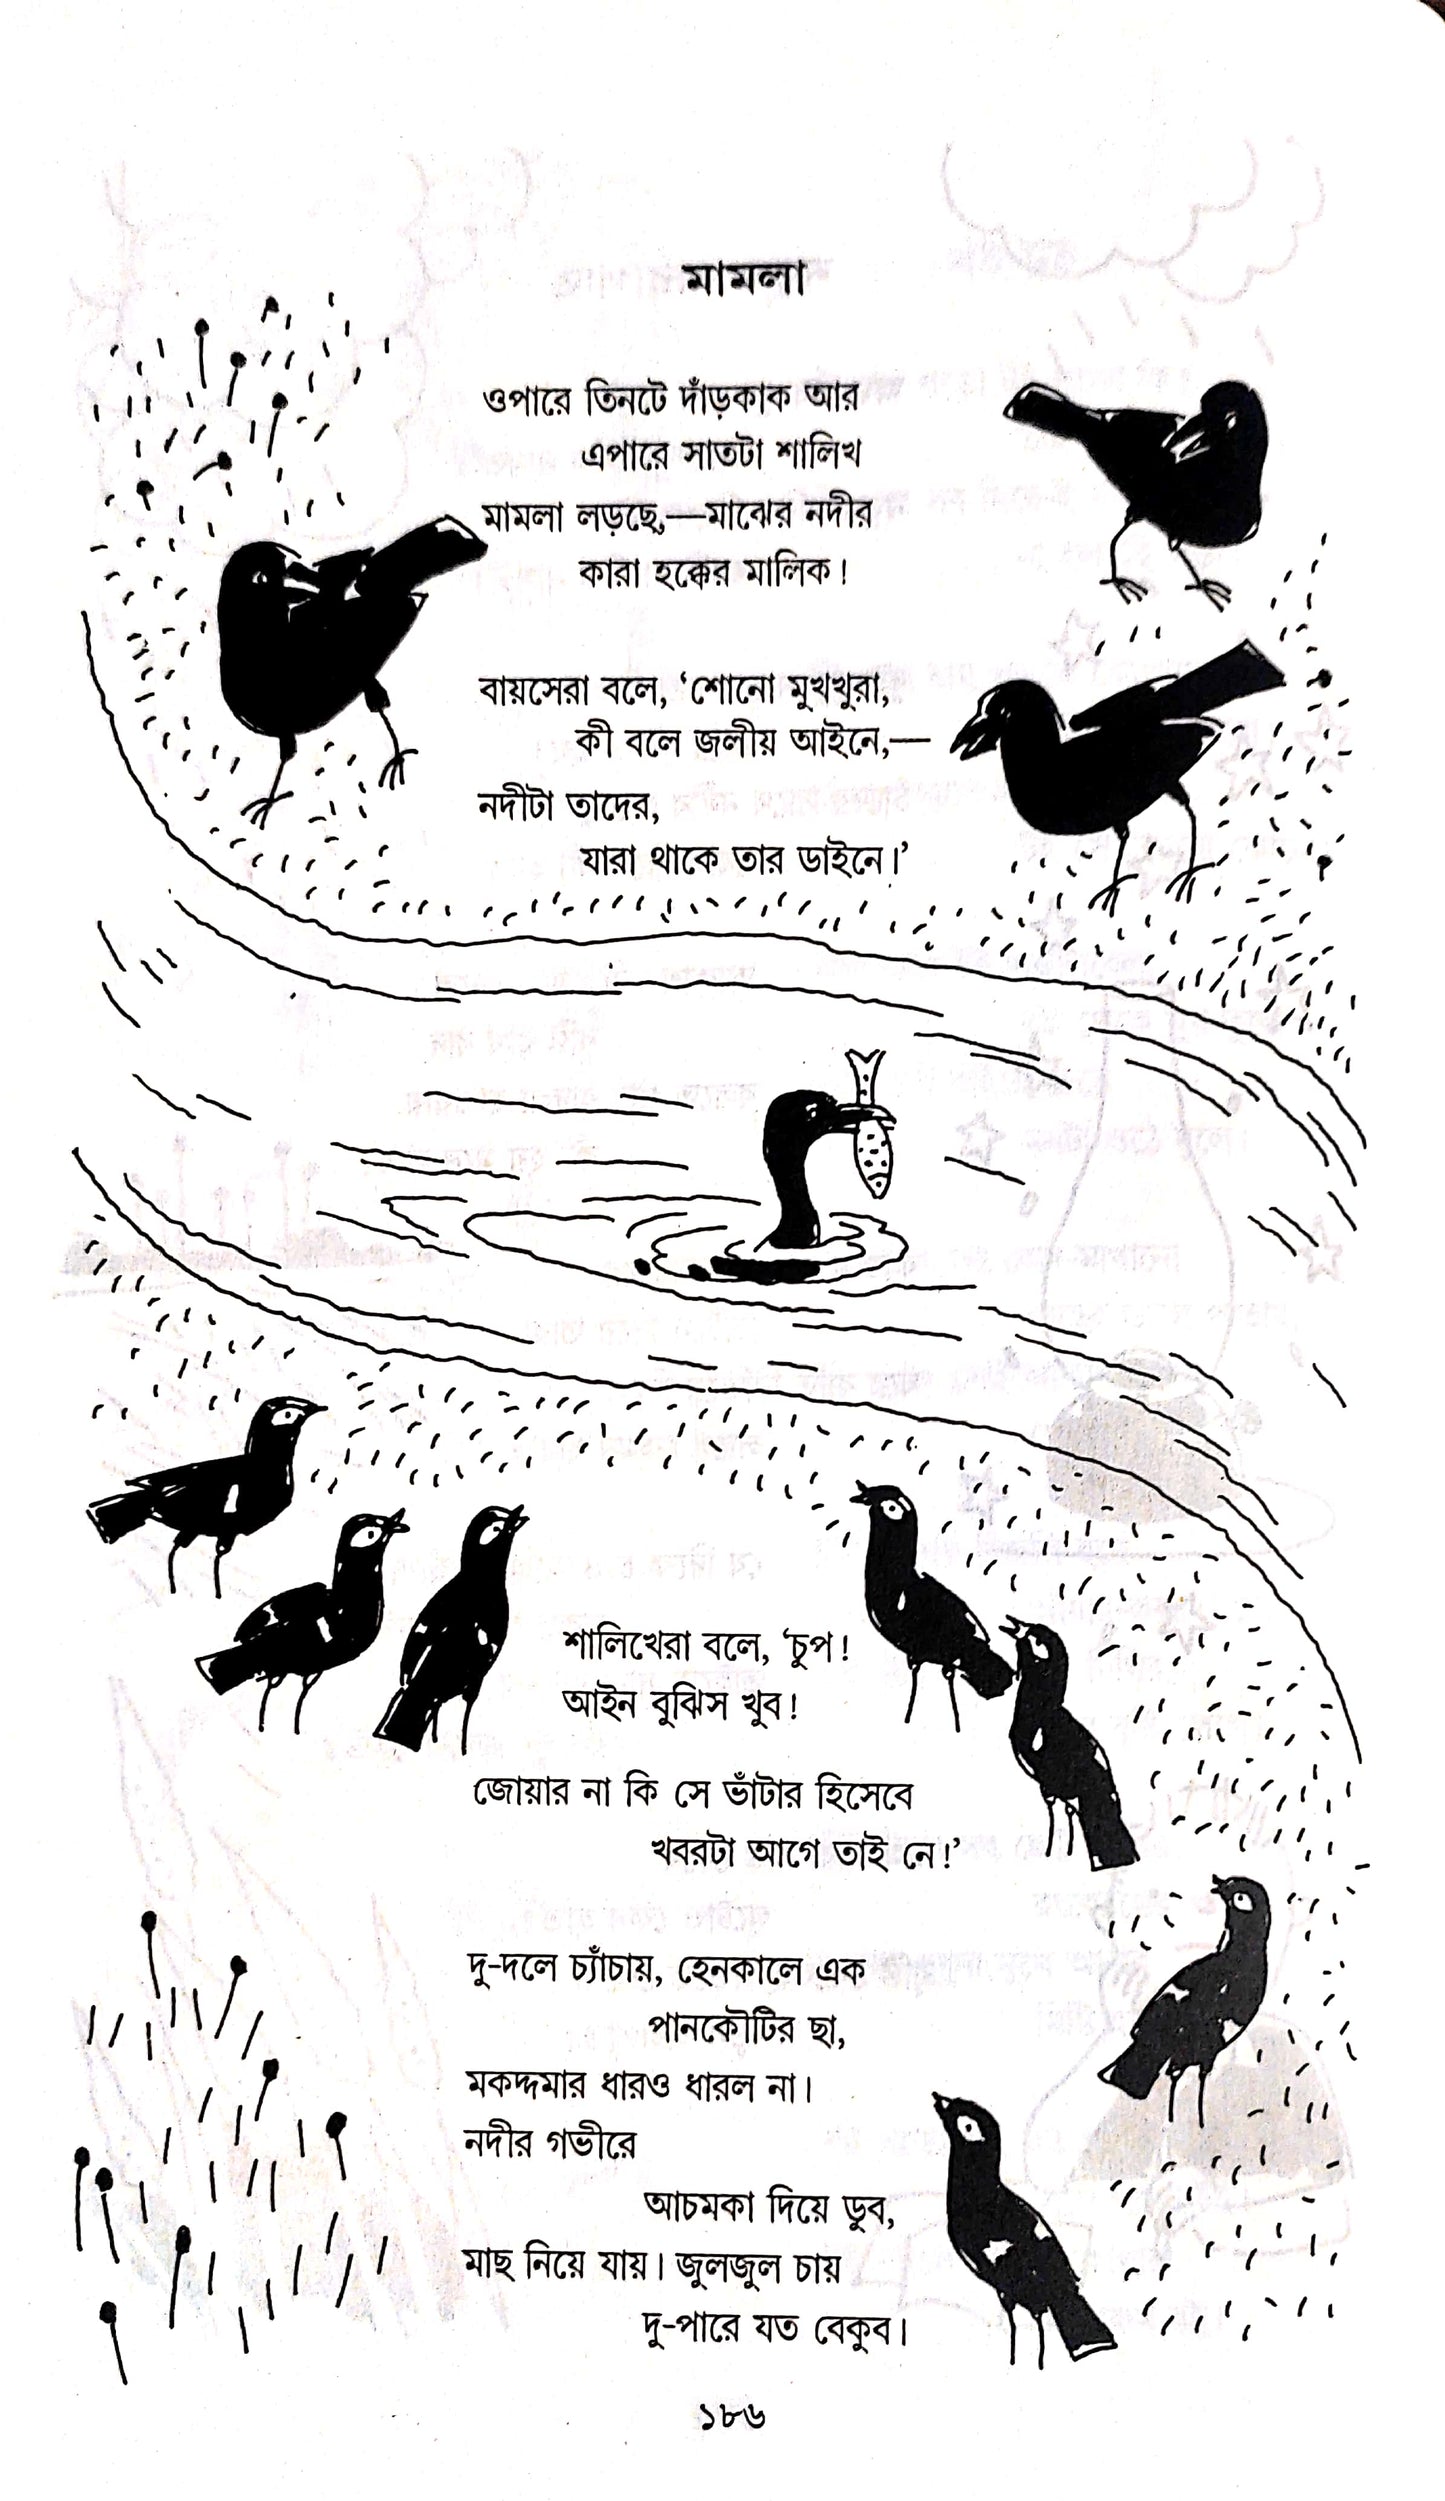 মামলা
ওপারে তিনটে দাঁড়কাক আর
এপারে সাতটা শালিখ
মামলা লড়ছে,—মাঝের নদীর
কারা হক্কের মালিক!
বায়সেরা বলে, ‘শোনো মুখখুরা,
কী বলে জলীয় আইনে,—
নদীটা তাদের,
যারা থাকে তার ডাইনে।’
শালিখেরা বলে, ‘চুপ!
আইন বুঝিস খুব!
জোয়ার না কি সে ভাঁটার হিসেবে
খবরটা আগে তাই নে!’
দু-দলে চ্যাঁচায়, হেনকালে এক
পানকৌটির ছা,
মকদ্দমার ধারও ধারল না।
নদীর গভীরে
আচমকা দিয়ে ডুব,
মাছ নিয়ে যায়। জুলজুল চায়
দু-পারে যত বেকুব।
১৮৬